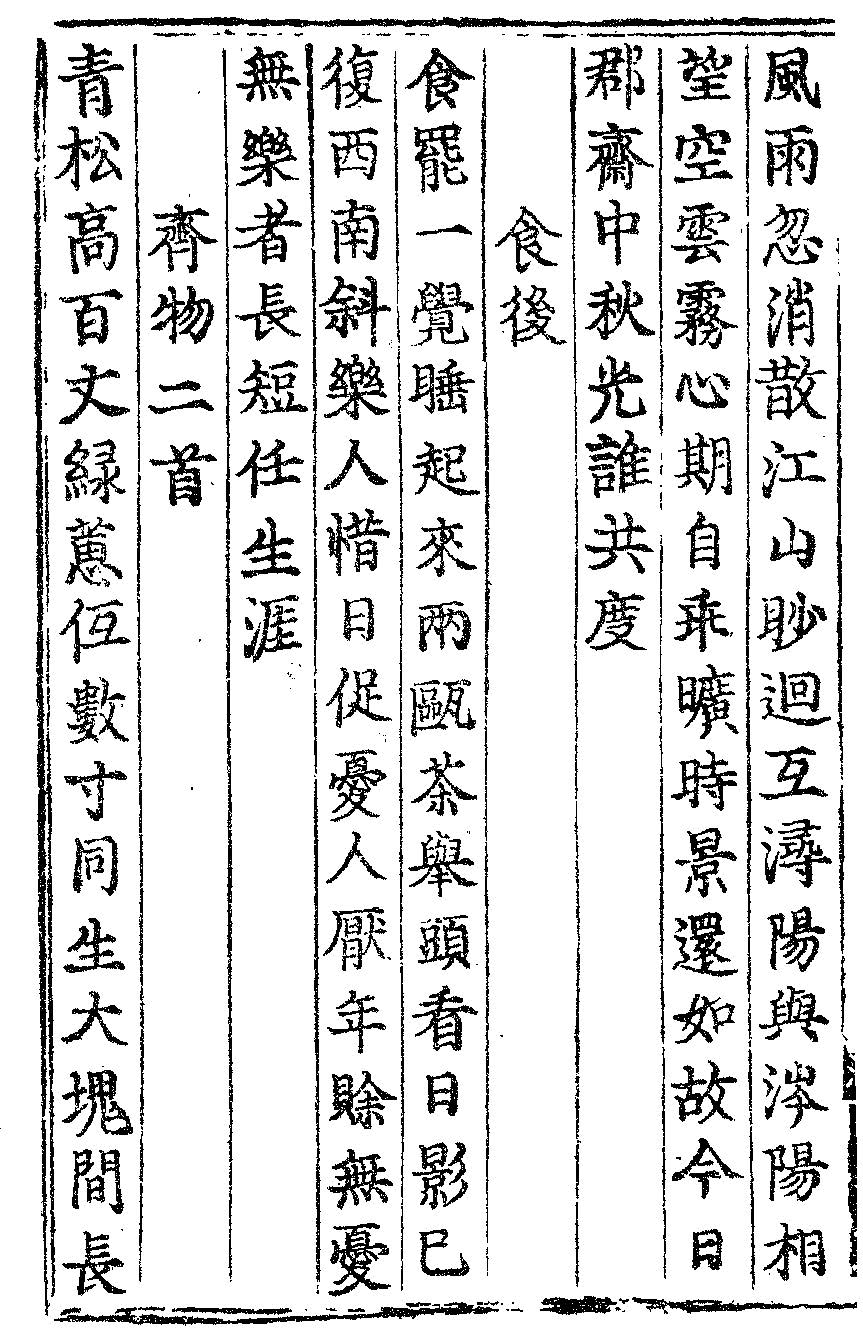 風雨忽消散江山眇迴互潯陽與涔陽相
望空雲霧心期自乖曠時景還如故今日
郡齋中秋光誰共度
食後
食罷一覺睡起來兩甌茶舉頭看日影已
復西南斜樂人惜日促憂人厭年賒無憂
無樂者長短任生涯
齊物二首
青松高百丈緑蕙低數寸同生大塊間長